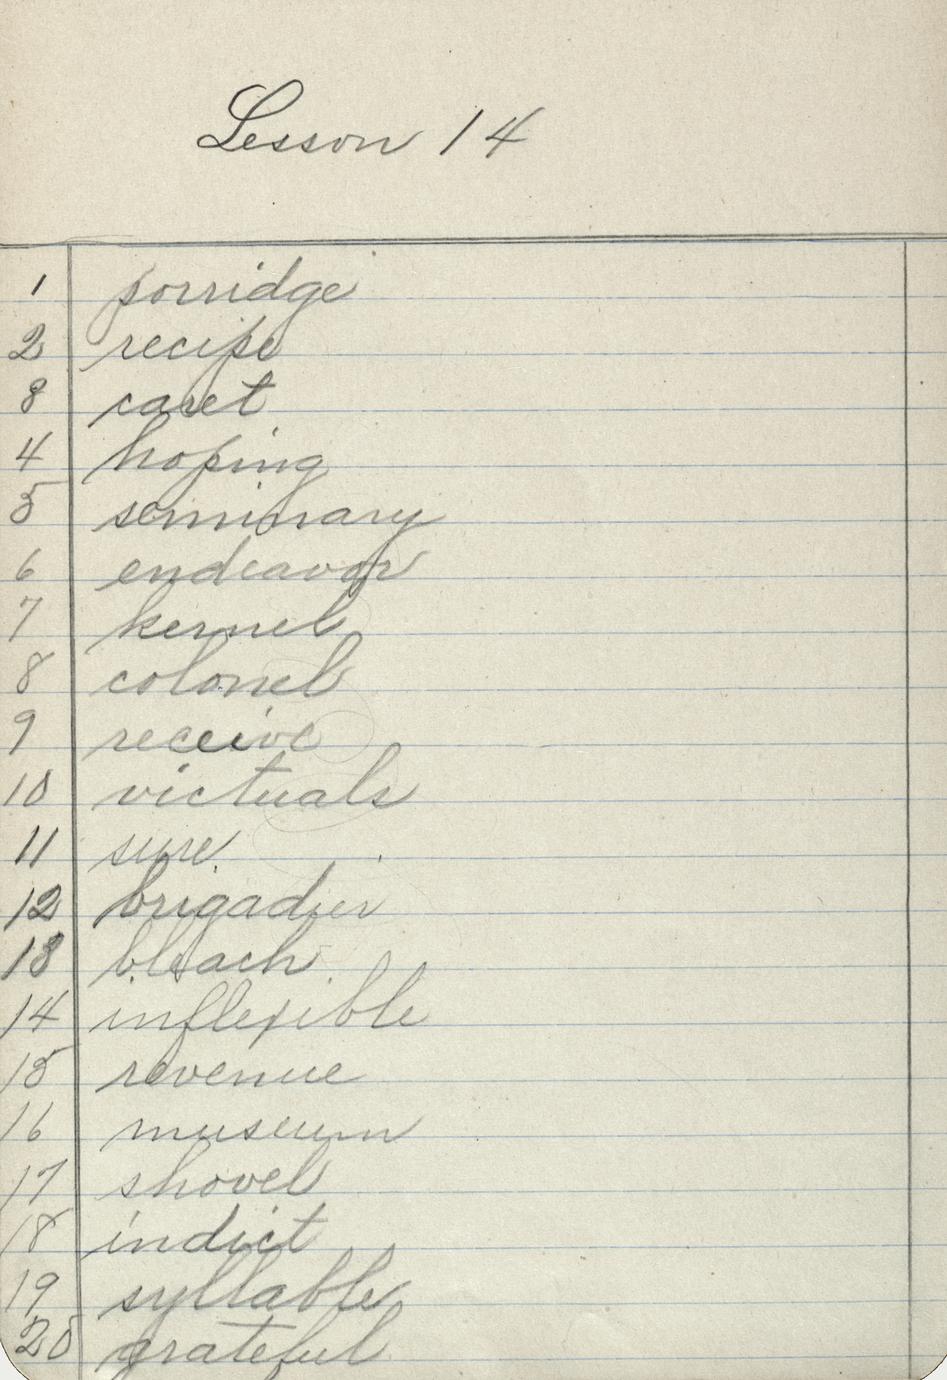 Lesson 14
1 porridge
2 recipe
3 caret
4 hoping
5 seminary
6 endeavor
7 kernel
8 colonel
9 receive
10 victuals
11 sure
12 brigadier
13 bleach
14 inflexible
15 revenue
16 museum
17 shovel
18 indict
19 syllable
20 grateful